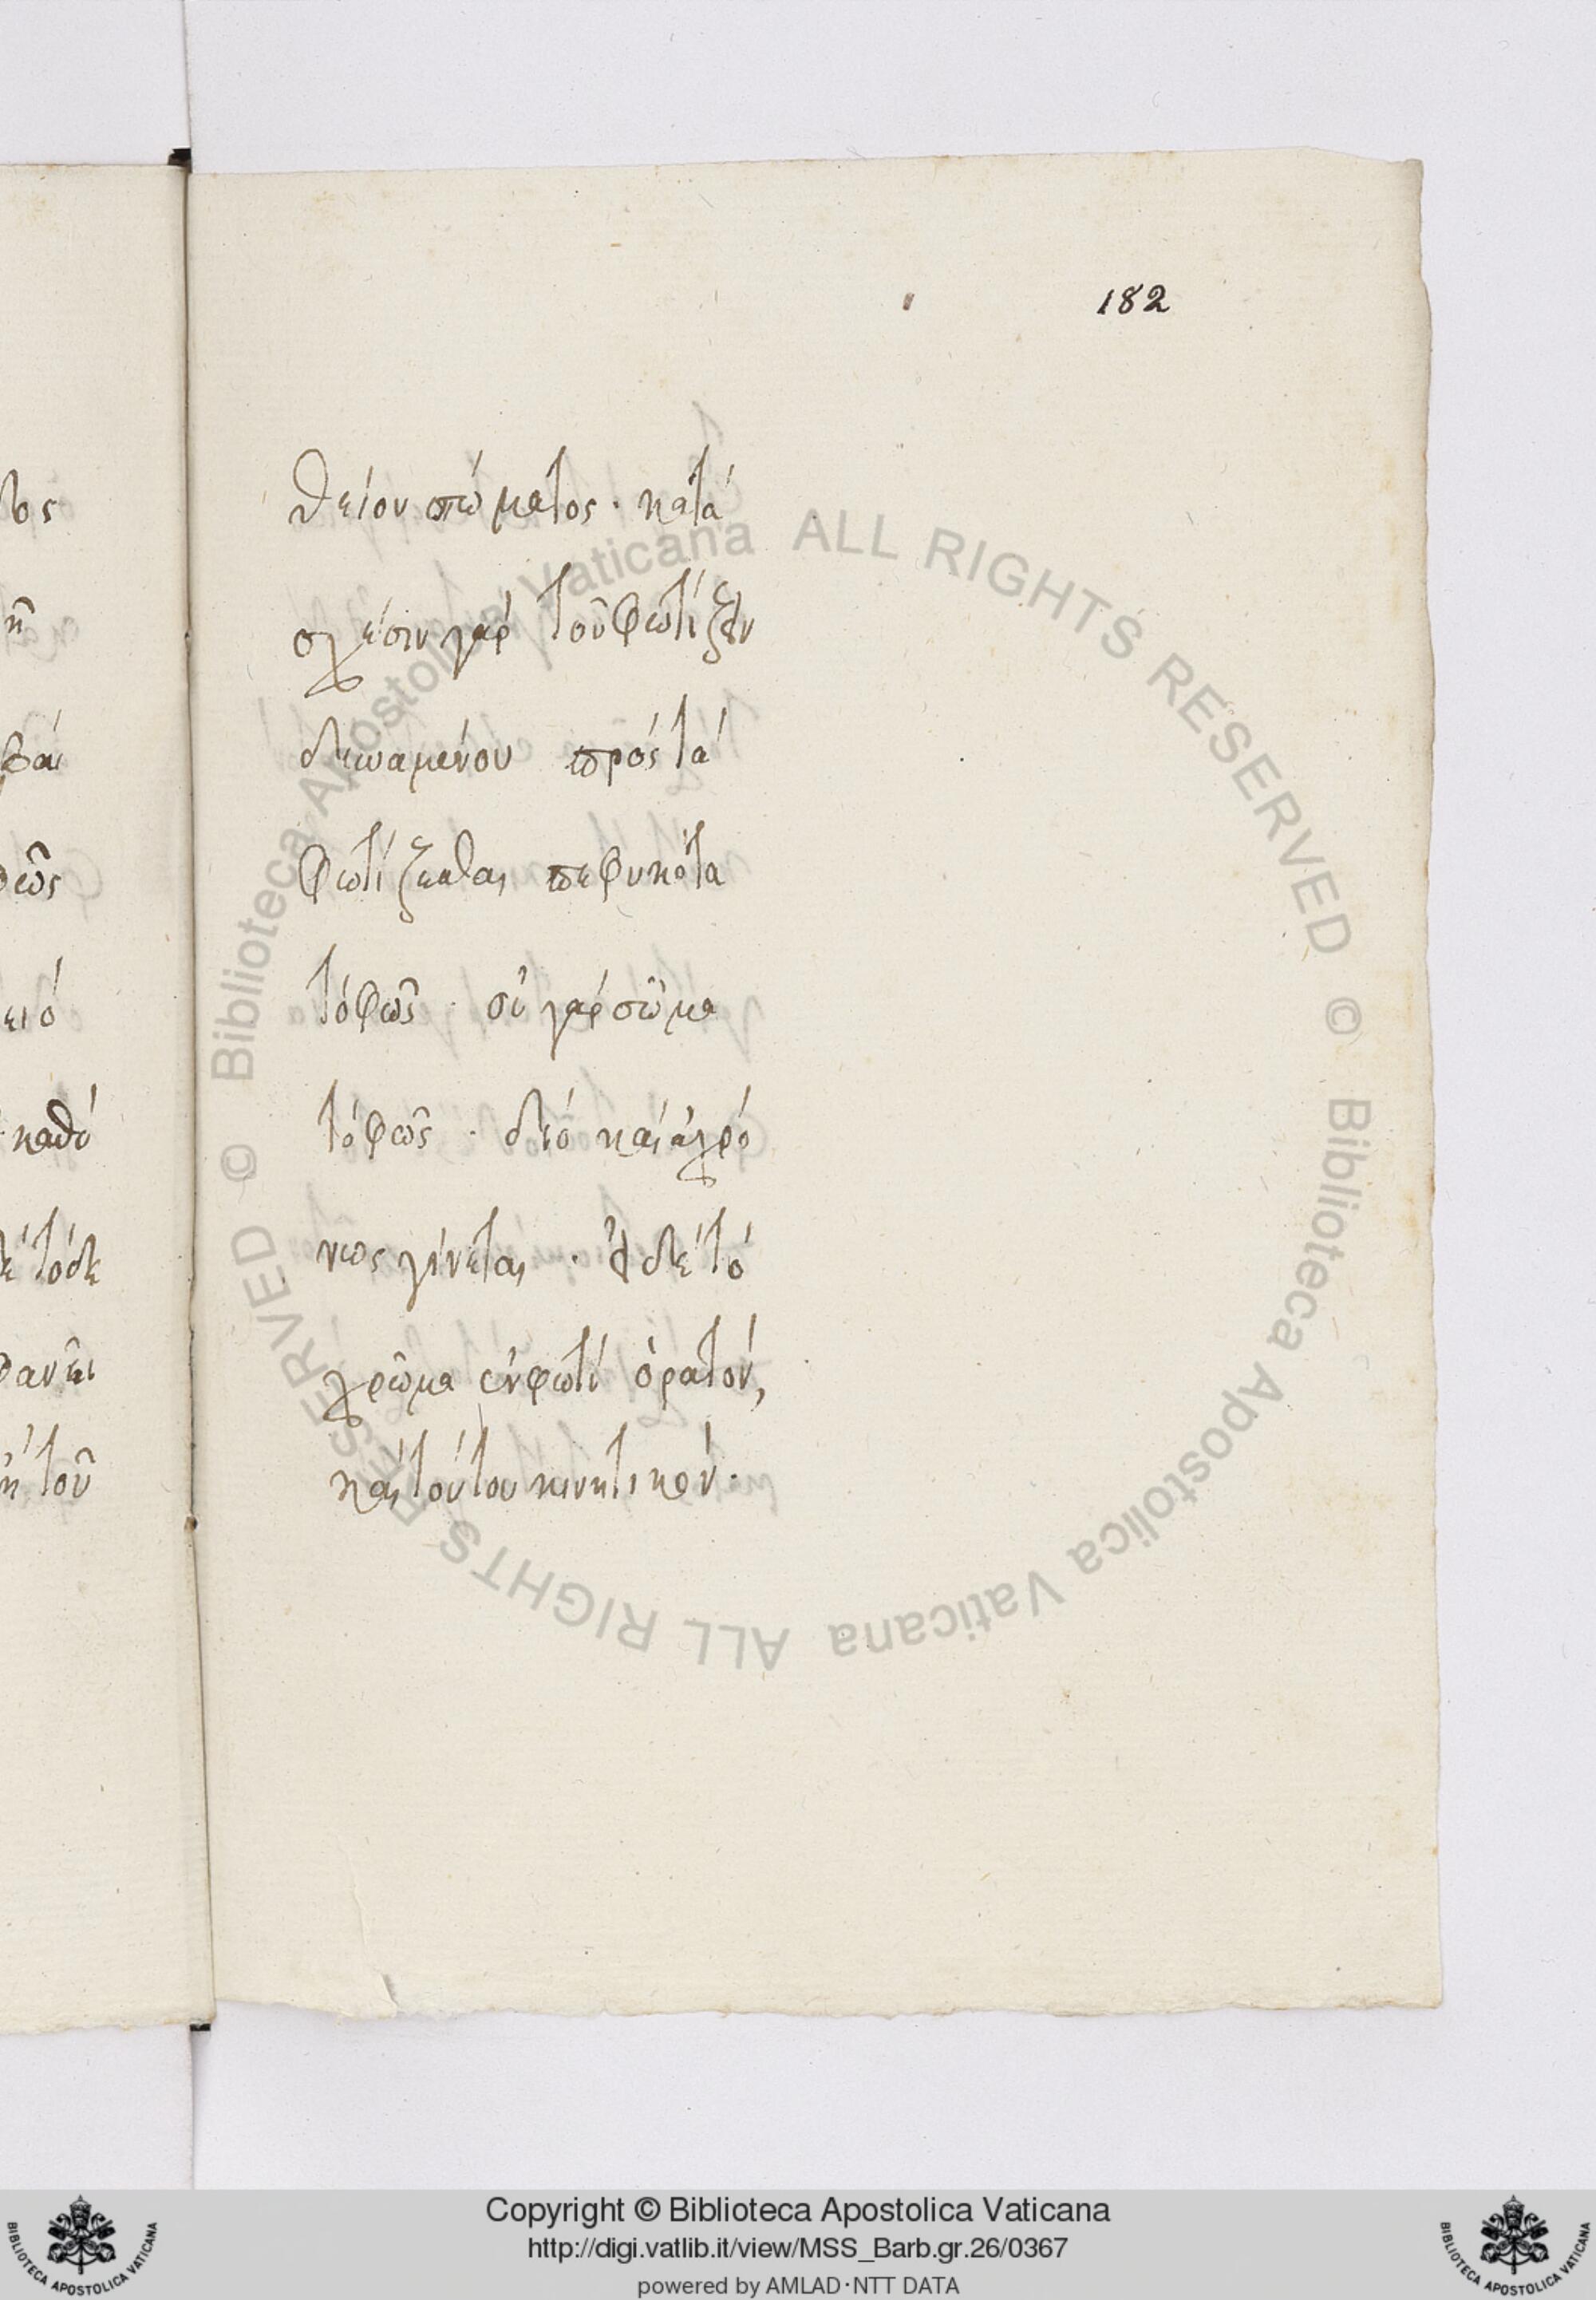 182
θείου σώματος · κατά
σχέσιν γάρ τοῦ φωτίζειν
δυναμένου πρός τά
φωτίζεσθαι πεφυκότα
τό φῶς · οὐ γάρ σῶμα
τό φῶς · διό καί ἀχρό
νως γίνεται · ἔστι δέ τό
χρῶμα ἐν φωτί ὁρατόν,
καί τούτου κινητικόν ·
τος
βαι
καθό
τόδε
τοῦ
Biblioteca Apostolica Vaticana ALL RIGHTS RESERVED © Biblioteca Apostolica Vaticana ALL RIGHTS RESERVED ©
Copyright © Biblioteca Apostolica Vaticana
http://digi.vatlib.it/view/MSS_Barb.gr.26/0367
powered by AMLAD·NTT DATA
BIBLIOTECA APOSTOLICA VATICANA
BIBLIOTECA APOSTOLICA VATICANA